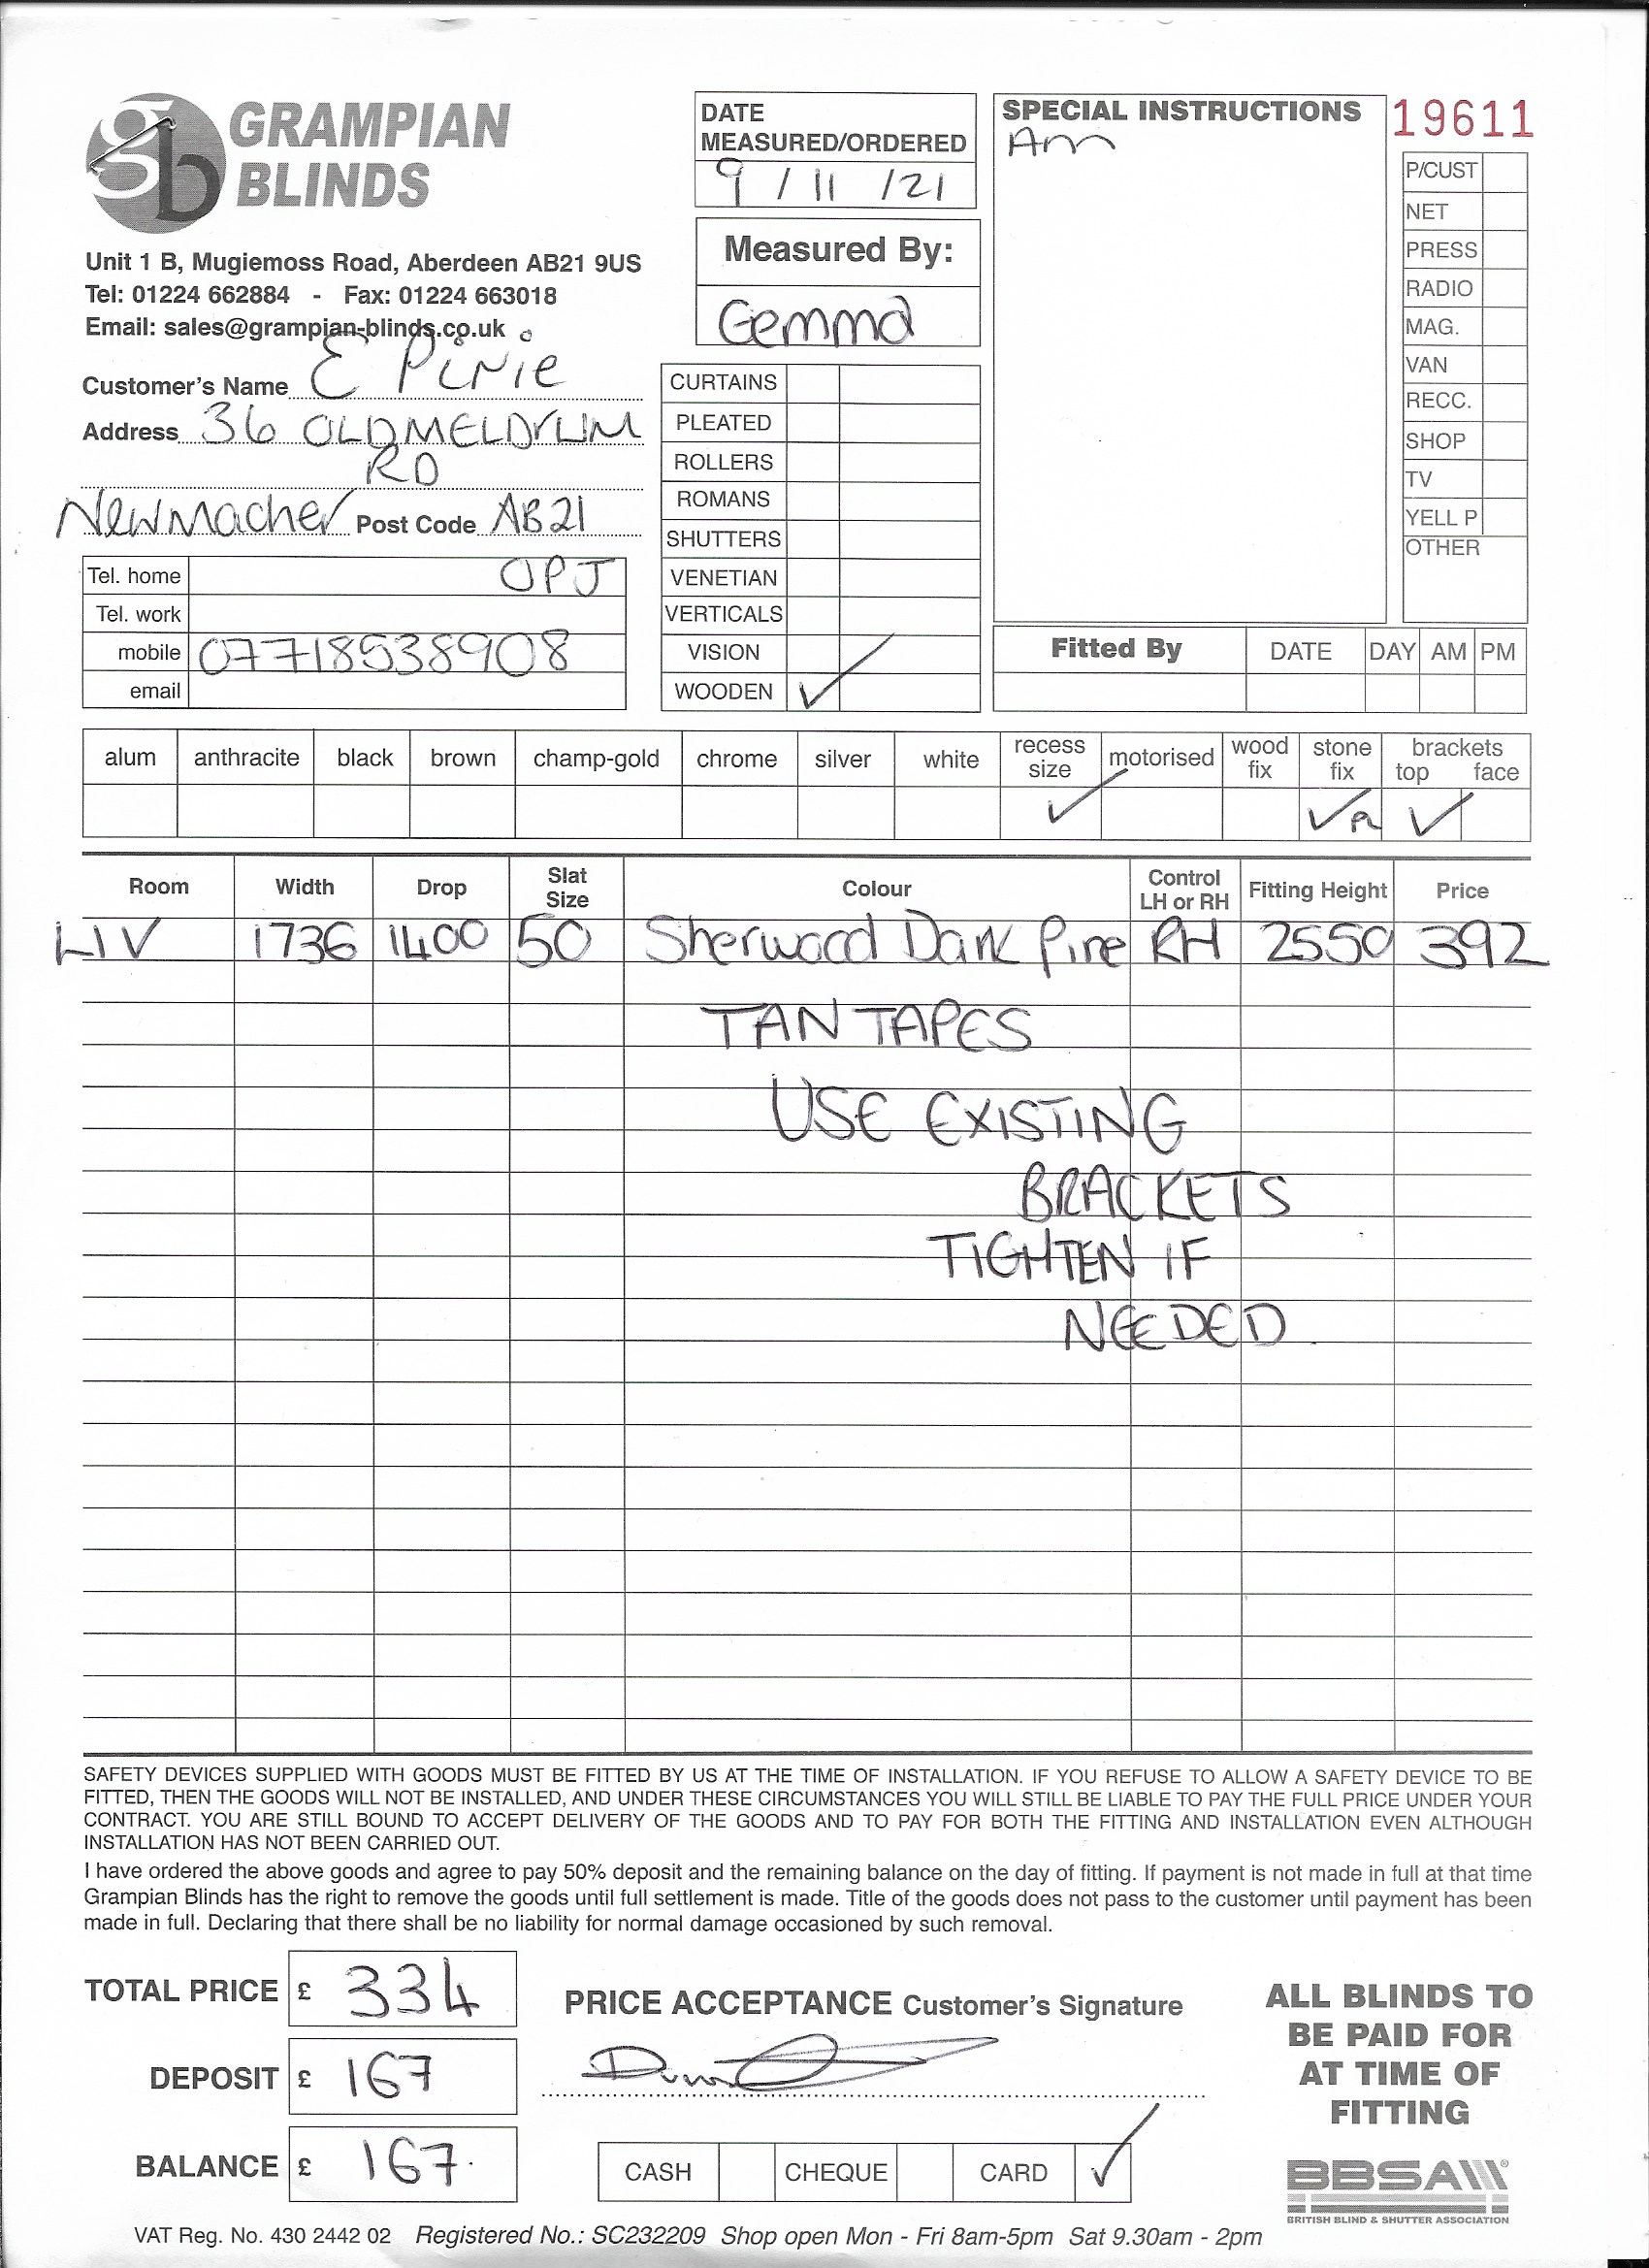 gb GRAMPIAN BLINDS
Unit 1 B, Mugiemoss Road, Aberdeen AB21 9US
Tel: 01224 662884 - Fax: 01224 663018
Email: sales@grampian-blinds.co.uk
Customer's Name E Pirie
Address 36 OLDMELDrUM
RD
Newmacher Post Code AB21
Tel. home OPJ
Tel. work
mobile 07718538908
email
DATE
MEASURED/ORDERED
9 / 11 /21
Measured By:
Gemma
CURTAINS
PLEATED
ROLLERS
ROMANS
SHUTTERS
VENETIAN
VERTICALS
VISION
WOODEN ✓
SPECIAL INSTRUCTIONS
Am
19611
P/CUST
NET
PRESS
RADIO
MAG.
VAN
RECC.
SHOP
TV
YELL P
OTHER
Fitted By DATE DAY AM PM
alum anthracite black brown champ-gold chrome silver white recess size motorised wood fix stone fix brackets top face
✓ ✓ ✓
Room Width Drop Slat Size Colour Control LH or RH Fitting Height Price
LIV 1736 1400 50 Sherwood Dark Pine RH 2550 392
TAN TAPES
USE EXISTING
BRACKETS
TIGHTEN IF
NEEDED
SAFETY DEVICES SUPPLIED WITH GOODS MUST BE FITTED BY US AT THE TIME OF INSTALLATION. IF YOU REFUSE TO ALLOW A SAFETY DEVICE TO BE
FITTED, THEN THE GOODS WILL NOT BE INSTALLED, AND UNDER THESE CIRCUMSTANCES YOU WILL STILL BE LIABLE TO PAY THE FULL PRICE UNDER YOUR
CONTRACT. YOU ARE STILL BOUND TO ACCEPT DELIVERY OF THE GOODS AND TO PAY FOR BOTH THE FITTING AND INSTALLATION EVEN ALTHOUGH
INSTALLATION HAS NOT BEEN CARRIED OUT.
I have ordered the above goods and agree to pay 50% deposit and the remaining balance on the day of fitting. If payment is not made in full at that time
Grampian Blinds has the right to remove the goods until full settlement is made. Title of the goods does not pass to the customer until payment has been
made in full. Declaring that there shall be no liability for normal damage occasioned by such removal.
TOTAL PRICE £ 334
DEPOSIT £ 167
BALANCE £ 167.
PRICE ACCEPTANCE Customer's Signature
CASH CHEQUE CARD ✓
ALL BLINDS TO
BE PAID FOR
AT TIME OF
FITTING
BBSA
BRITISH BLIND & SHUTTER ASSOCIATION
VAT Reg. No. 430 2442 02 Registered No.: SC232209 Shop open Mon - Fri 8am-5pm Sat 9.30am - 2pm